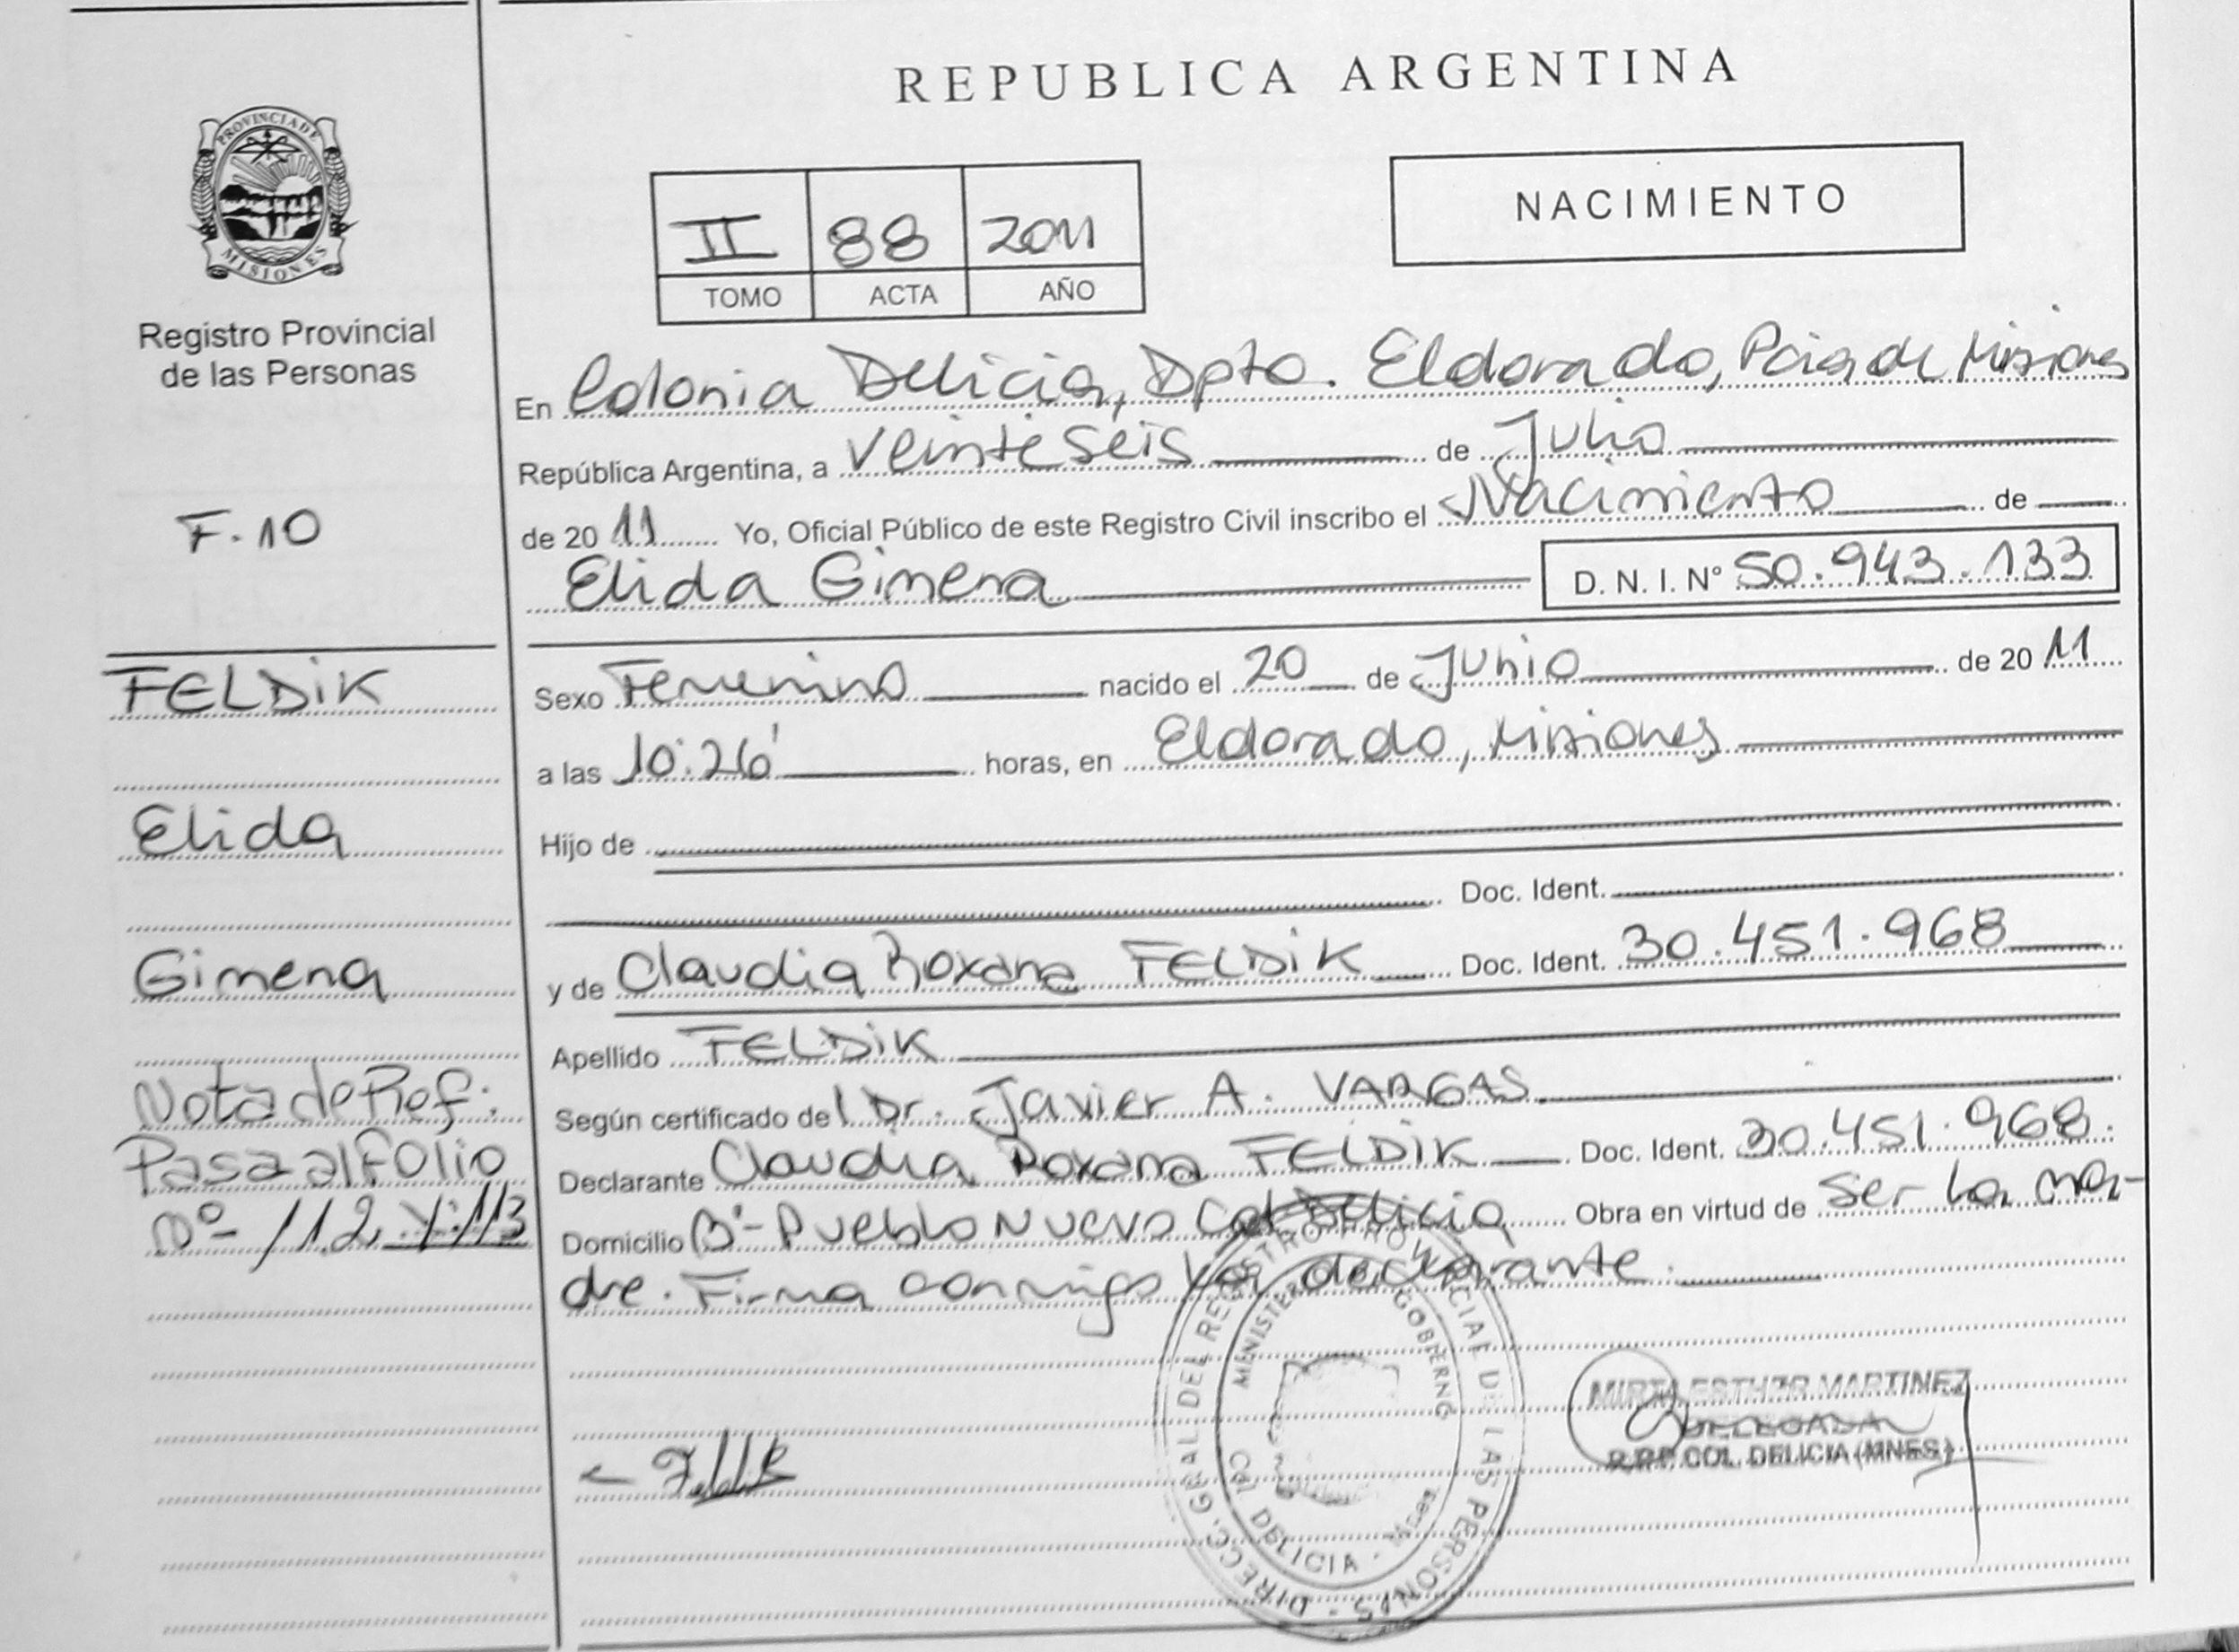 REPUBLICA ARGENTINA
PROVINCIA DE
MISIONES
Registro Provincial
de las Personas
NACIMIENTO
II 88 2011
TOMO ACTA AÑO
En Colonia Delicia, Dpto. Eldorado, Pcia de Misiones
República Argentina, a Veinteseis de Julio
de 2011 Yo, Oficial Público de este Registro Civil inscribo el Nacimiento de
Elida Gimena D. N. I. Nº 50.943.133
F. 10
FELDIK
Elida
Gimena
Nota de Ref:
Pasa al Folio
Nº 112 y 113
Sexo Femenino nacido el 20 de Junio de 2011
a las 10:26' horas, en Eldorado, Misiones
Hijo de
Doc. Ident.
y de Claudia Roxana FELDIK Doc. Ident. 30.451.968
Apellido FELDIK
Según certificado del Dr. Javier A. VARGAS.
Declarante Claudia Roxana FELDIK Doc. Ident. 30.451.968.
Domicilio Bº- Pueblo Nuevo Col Delicia Obra en virtud de Ser la ma-
dre. Firma conmigo la declarante.
DIRECC. GRAL DEL REGISTRO PROVINCIAL DE LAS PERSONAS
MINISTERIO GOBIERNO
COL DELICIA - Mnes
MIRTA ESTHER MARTINEZ
DELEGADA
R.P.P COL. DELICIA (MNES)